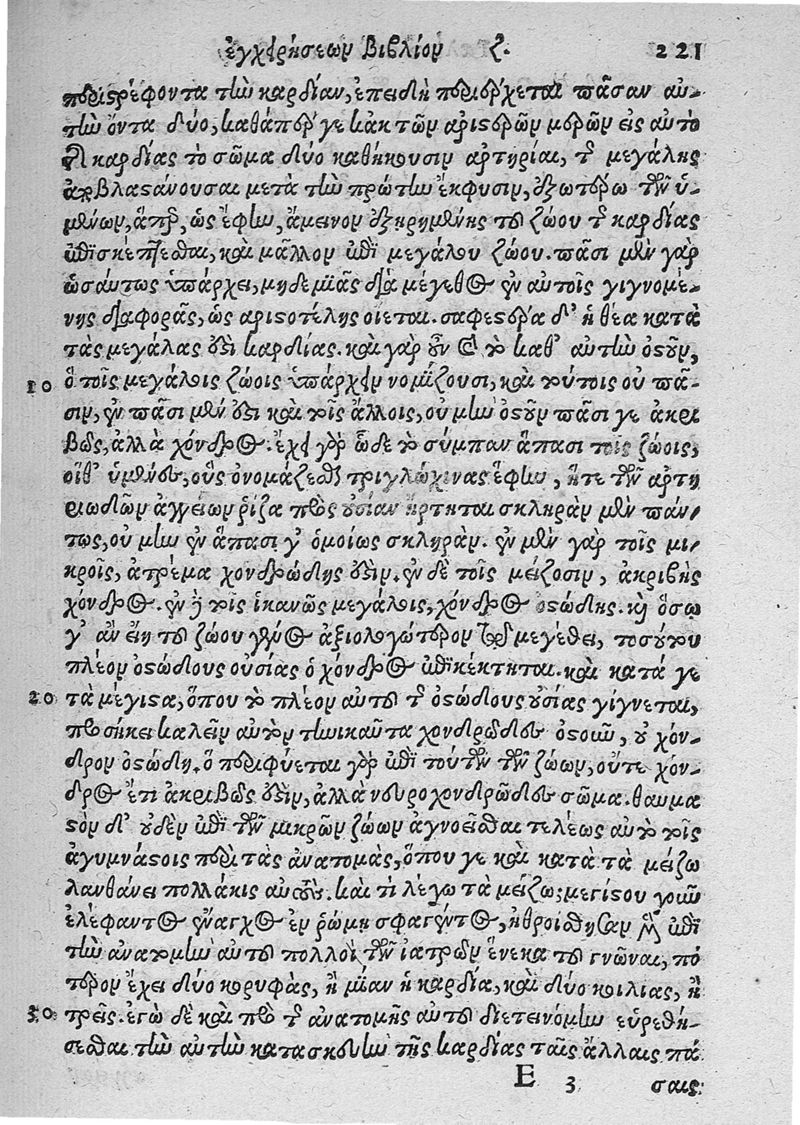 ἐγχειρήσεων Βιβλίον ζ. 221
περιστρέφοντα τὴν καρδίαν, ἐπειδὴ περιέρχεται πᾶσαν αὐ-
τὴν ὄντα δύο, καθάπερ γε κἀκ τῶν ἀριστερῶν μερῶν εἰς αὐτὸ
τῆς καρδίας τὸ σῶμα δύο καθήκουσιν ἀρτηρίαι, τῆς μεγάλης
ἀποβλαστάνουσαι μετὰ τὴν πρώτην ἔκφυσιν, ἐξωτέρω τῶν ὑ-
μένων, ἅπερ, ὡς ἔφην, ἄμεινον ἐξῃρημένης τοῦ ζώου τῆς καρδίας
ἐπισκέπτεσθαι, καὶ μᾶλλον ἐπὶ μεγάλου ζώου. πᾶσι μὲν γὰρ
ὡσαύτως ὑπάρχει, μηδεμιᾶς διὰ μέγεθος ἐν αὐτοῖς γιγνομέ-
νης διαφορᾶς, ὡς ἀριστοτέλης οἴεται. σαφεστέρα δ' ἡ θέα κατὰ
τὰς μεγάλας ἐστὶ καρδίας. καὶ γὰρ οὖν καὶ τὸ καθ' αὑτὴν ὀστοῦν,
10 ὃ τοῖς μεγάλοις ζώοις ὑπάρχειν νομίζουσι, καὶ τούτοις οὐ πᾶ-
σιν, ἐν πᾶσι μέν ἐστι καὶ τοῖς ἄλλοις, οὐ μὴν ὀστοῦν πᾶσι γε ἀκρι
βῶς, ἀλλὰ χόνδρος. ἔχει γὰρ ὧδε τὸ σύμπαν ἅπασι τοῖς ζώοις,
οἵθ' ὑμένες, οὓς ὀνομάζεσθαι τριγλώχινας ἔφην, ἥτε τῶν ἀρτη
ριωδῶν ἀγγείων ῥίζα πρὸς οὐσίαν ἤρτηται σκληρὰν μὲν πάν-
τως, οὐ μὴν ἐν ἅπασι γ' ὁμοίως σκληράν. ἐν μὲν γὰρ τοῖς μι-
κροῖς, ἀτρέμα χονδρώδης ἐστίν. ἐν δὲ τοῖς μείζοσιν, ἀκριβὴς
χόνδρος. ἐν δὲ τοῖς ἱκανῶς μεγάλοις, χόνδρος ὀστώδης. καὶ ὅσῳ
γ' ἂν εἴη τοῦ ζώου γένος ἀξιολογώτερον τῷ μεγέθει, τοσούτου
πλέον ὀστώδους οὐσίας ὁ χόνδρος ἐπικέκτηται. καὶ κατά γε
20 τὰ μέγιστα, ὅπου τὸ πλέον αὐτοῦ τῆς ὀστώδους οὐσίας γίγνεται,
προσήκει καλεῖν αὐτὸν τηνικαῦτα χονδρῶδες ὀστοῦν, οὐ χόν-
δρον ὀστώδη. ὃ περιφύεται γὰρ ἐπὶ τούτων τῶν ζώων, οὔτε χόν-
δρος ἔτι ἀκριβῶς ἐστὶν, ἀλλὰ νευροχονδρῶδες σῶμα. θαυμα
στὸν δ' οὐδὲν ἐπὶ τῶν μικρῶν ζώων ἀγνοεῖσθαι τελέως αὐτὸ τοῖς
ἀγυμνάστοις περὶ τὰς ἀνατομὰς, ὅπου γε καὶ κατὰ τὰ μείζω
λανθάνει πολλάκις αὐτούς. καὶ τὶ λέγω τὰ μείζω; μεγίστου γοῦν
ἐλέφαντος ἔναγχος ἐν ῥώμῃ σφαγέντος, ἠθροίσθησαν μὲν ἐπὶ
τὴν ἀνατομὴν αὐτοῦ πολλοὶ τῶν ἰατρῶν ἕνεκα τοῦ γνῶναι, πό
τερον ἔχει δύο κορυφὰς, ἢ μίαν ἡ καρδία, καὶ δύο κοιλίας, ἢ
30 τρεῖς. ἐγὼ δὲ καὶ πρὸ τῆς ἀνατομῆς αὐτοῦ διετεινόμην εὑρεθή-
σεσθαι τὴν αὐτὴν κατασκευὴν τῆς καρδίας ταῖς ἄλλαις πά
E 3 σαις